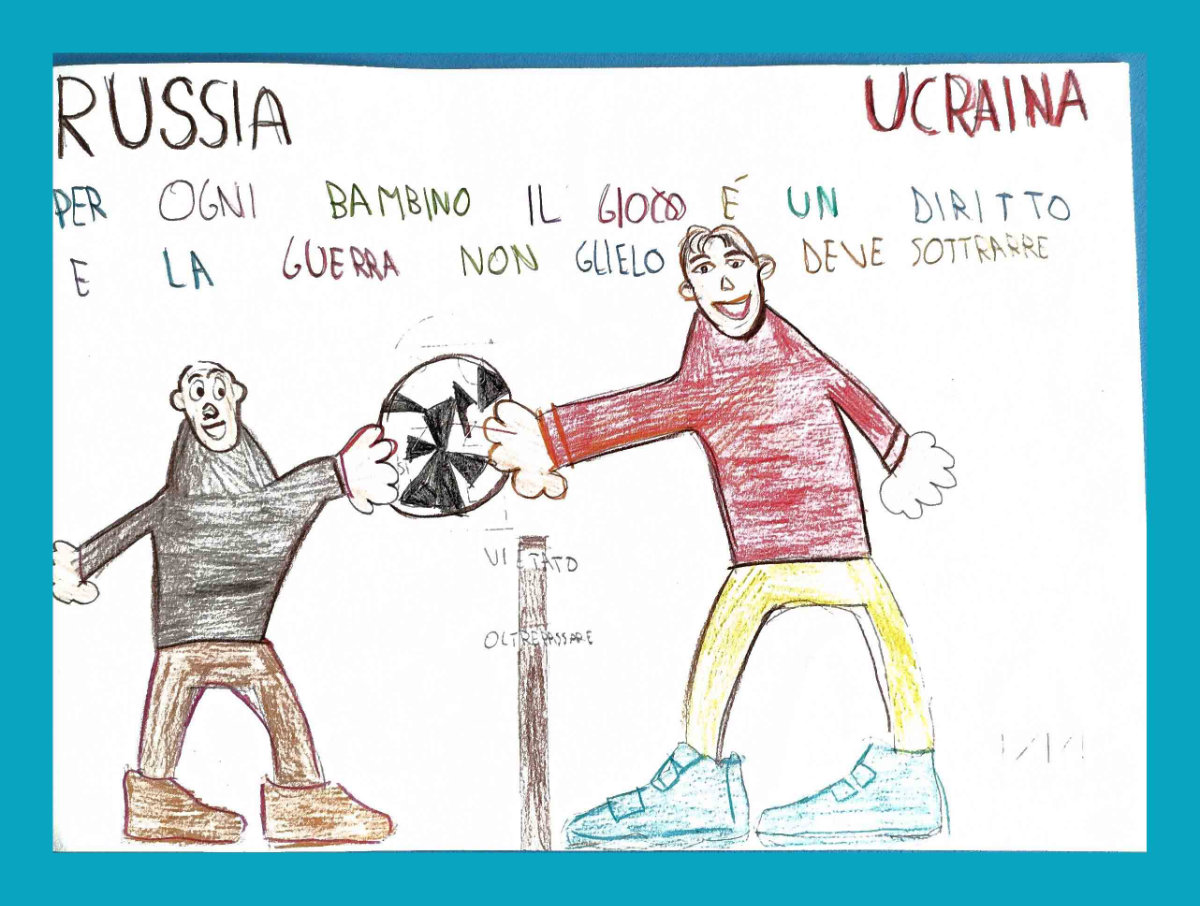 RUSSIA UCRAINA
PER OGNI BAMBINO IL GIOCO É UN DIRITTO
E LA GUERRA NON GLIELO DEVE SOTTRARRE
VIETATO
OLTREPASSARE